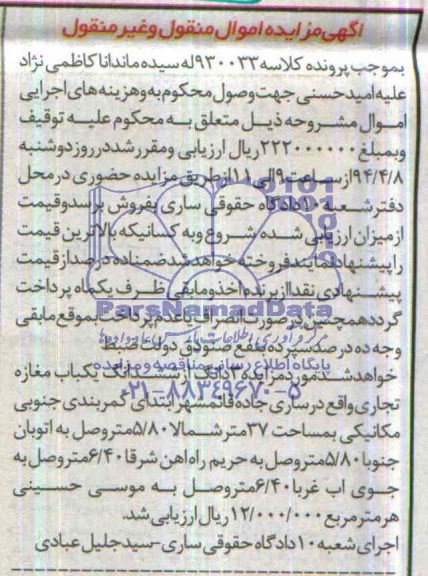 آگهی مزایده اموال منقول وغیر منقول
بموجب پرونده کلاسه ۹۳۰۰۳۳له سیده ماندانا کاظمی نژاد
علیه امید حسنی جهت وصول محکوم به وهزینه های اجرایی
اموال مشروحه ذیل متعلق به محکوم علیه توقیف
وبمبلغ ۲۲۲۰۰۰۰۰۰ریال ارزیابی ومقررشددرروزدوشنبه
۹۴/۴/۸ازساعت۹الی۱۱ازطریق مزایده حضوری درمحل
دفترشعبه ۱۰دادگاه حقوقی ساری بفروش برسدوقیمت
ازمیزان ارزیابی شده شروع وبه کسانیکه بالاترین قیمت
راپیشنهادنمایندفروخته خواهدشدضمناده درصدازقیمت
پیشنهادی نقداازبرنده اخذومابقی ظرف یکماه پرداخت
گرددهمچنین درصورت انصراف یاعدم پرداخت بموقع مابقی
وجه ده درصدسپرده بنفع صندوق دولت ضبط
خواهدشدموردمزایده ۲دانگ ازشش دانگ یکباب مغازه
تجاری واقع درساری جاده قائمشهرابتدای کمربندی جنوبی
مکانیکی بمساحت ۳۷مترشمالا۵/۸۰متروصل به اتوبان
جنوبا۵/۸۰متروصل به حریم راه اهن شرقا۶/۴۰متروصل به
جوی اب غربا۶/۴۰متروصل به موسی حسینی
هرمترمربع ۱۲/۰۰۰/۰۰۰ریال ارزیابی شد.
اجرای شعبه ۱۰دادگاه حقوقی ساری-سیدجلیل عبادی
ParsNamadData
پایگاه اطلاع رسانی مناقصه و مزایده
۰۲۱-۸۸۳۴۹۶۷۰-۵